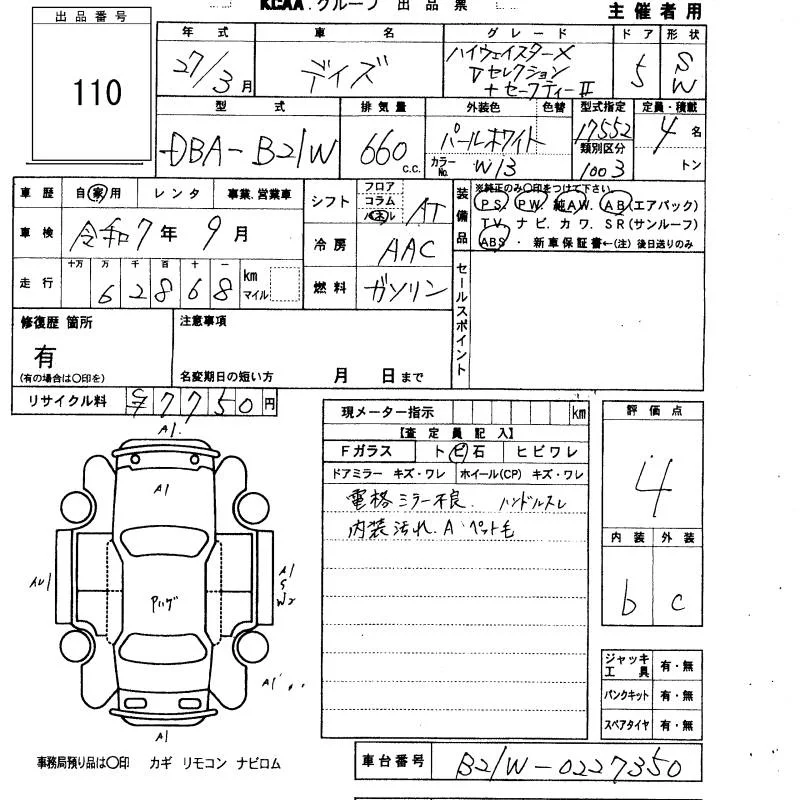 KCAA.グループ 出品票
主催者用
出品番号
110
年式 車名 グレード ドア 形状
27/3月 デイズ ハイウェイスターX
Vセレクション
+セーフティーⅡ
5 SW
型式 排気量 外装色 色替 型式指定 定員・積載
DBA-B21W 660c.c. パールホワイト 17552 4名
カラーNo. W13 類別区分 1003 トン
車歴 自家用 レンタ 事業.営業車
シフト フロア コラム パネル AT
装備品 ※純正のみ〇印をつけて下さい
PS. PW. 純AW. AB(エアバック)
TV. ナビ. カワ. SR(サンルーフ)
ABS ・ 新車保証書←(注)後日送りのみ
車検 令和7年9月
冷房 AAC
走行 十万 万 千 百 十 一
62868 km マイル
燃料 ガソリン
セールスポイント
修復歴 箇所
有
(有の場合は〇印を)
注意事項
名変期日の短い方 月 日まで
リサイクル料 7750円
現メーター指示 km
【査定員記入】
Fガラス トビ石 ヒビワレ
ドアミラー キズ・ワレ ホイール(CP) キズ・ワレ
電格ミラー不良. ハンドルスレ
内装汚れ.A ペット毛
評価点
4
内装 外装
b c
A1.
A1
AU1
Pハゲ
A1
S
W2
A1
A1
ジャッキ工具 有・無
パンクキット 有・無
スペアタイヤ 有・無
事務局預り品は〇印 カギ リモコン ナビロム
車台番号 B21W-0227350